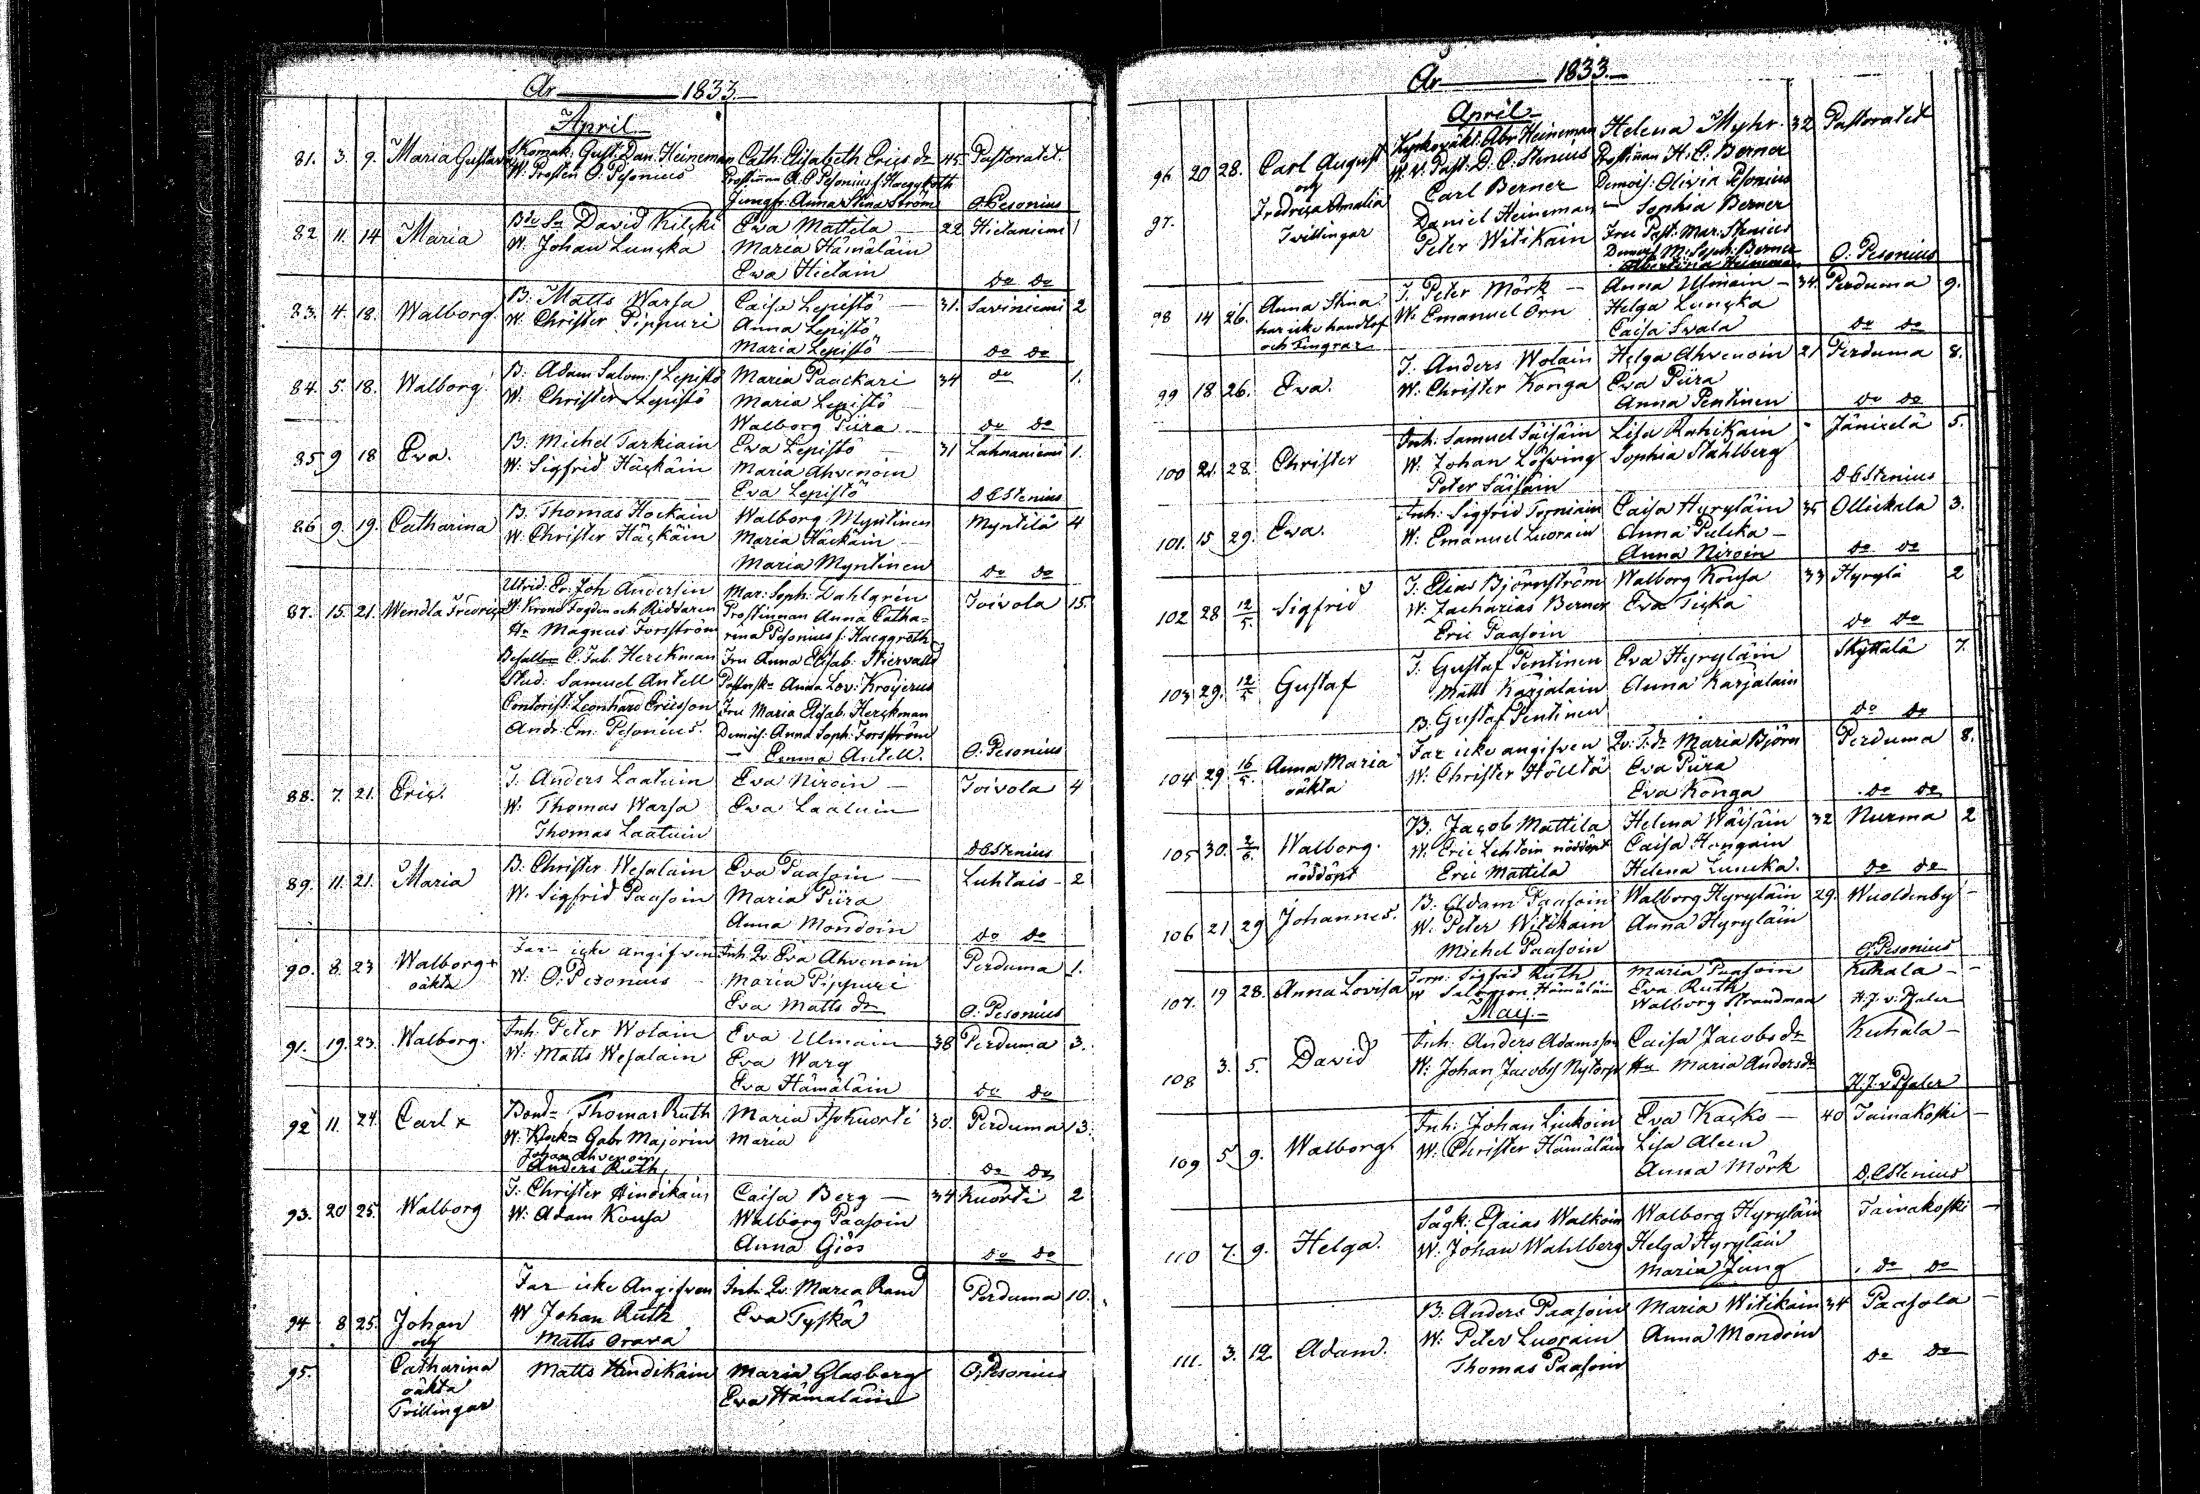 År 1833.
April
81. 3. 9. Maria Gustava Skomak: Gust: Dan. Heineman Cath. Elisabeth Erics dr 45. Pastoratet.
W: Prosten O. Pesonius Prostinnan A. C. Pesonius f. Haeggroth
Jungfr: Anna Stina Ström O. Pesonius
82 11. 14 Maria Bde Sn David Kilcki Eva Mattila 22 Hietaniemi 1
W. Johan Luncka Maria Hämäläin
Ewa Hietain do do
83. 4. 18. Walborg. B: Matts Warsa Caisa Lepistö 31. Saviniemi 2
W. Christer Pippuri Anna Lepistö
Maria Lepistö do do
84. 5. 18. Walborg. B: Adam Salom: / Lepistö Maria Paackari 34 do 1.
W. Christer Lepistö Maria Lepistö
Walborg Piira do do
85 9 18 Eva. B: Michel Tarkiain Eva Lepistö 31 Lahnaniemi 1.
W. Sigfrid Häckäin Maria Ahvenoin
Eva Lepistö D E Stenius
86 9. 19. Catharina B. Thomas Hockain Walborg Myntinen Myntilä 4
W. Christer Häckäin Maria Häckäin
Maria Myntinen do do
87. 15. 21. Wendla Fredrica Utrid: Er: Joh Andersin Mar: Soph: Dahlgrén Toivola 15.
W. Krono Fogden och Riddaren Prostinnan Anna Catha=
Hr Magnus Forsström rina Pesonius f: Haeggroth
C. Jab. Herckman Fru Anna Elisab:
Stud: Samuel Antell Anna Lov: Krogerus
Contorist: Leonhard Ericsson Fru Maria Elisab. Herckman
Andr: Em: Pesonius. Demois: Anna Soph: Forsström
— Emma Antell. O: Pesonius
88. 7. 21. Eric. T: Anders Laatuin Eva Niroin Toivola 4
W: Thomas Warsa Ewa Laatuin
Thomas Laatuin
D E Stenius
89. 11. 21. Maria B: Christer Wesalain Eva Paasoin Luhtais 2
W. Sigfrid Paasoin Maria Piira
Anna Mondoin do do
90. 8. 23 Walborg + Far icke angifven Inh: Qv. Eva Ahvenoin Perduma 1.
oäkta W: O: Pesonius Maria Pippuri
Eva Matts dr O: Pesonius
91. 19. 23. Walborg. Inh: Peter Wolain Eva Ulmain 38 Perduma 3.
W: Matts Wesalain Eva Warg
Eva Hämäläin do do
92 11. 24. Carl x Bond: Thomas Ruth Maria 30. Perduma 13.
W: Klock: Gab: Majorin Maria
Johan Ahvenoin
Anders Ruth do do
93. 20 25. Walborg T: Christer Hindikain Caisa Berg 34 Kuorti 2
W: Adam Kousa Walborg Paasoin
Anna Giös do do
Far icke Angifven Inh: Qv. Maria Rand Perduma 10.
94 8 25. Johan W Johan Ruth Eva Tyskä
och Matts Orava
95. Catharina Matts Hindikain Maria Glasberg O; Pesonius
oäkta Eva Hämäläin
Tvillingar
År 1833.
April
Abr Heineman Helena Myhr. 32 Pastoratet
96 20 28. Carl August W. v. Past: D. E. Stenius Prostinnan H. C. Berner
och Carl Berner Demois: Olivia Pesonius
97. Fredrica Amalia Daniel Heineman — Sophia Berner
Tvillingar Peter Witikain Fru Past: Mar: Stenius
Demois M: Soph: Berner
Albertina Heineman O: Pesonius
98 14 26. Anna Stina T. Peter Mörk Anna Ulmain 34. Perduma 9.
har icke handlof W: Emanuel Örn Helga Luncka
och Fingrar Caisa Svala do do
99 18 26. Eva. T. Anders Wolain Helga Ahvenoin 21 Perduma 8.
W: Christer Konga Eva Piira
Anna Pentinen do do
100 21. 28. Christer Inh: Samuel Säisäin Lisa Ratikain Jänicelä 5.
W. Johan Löfving Sophia Stahlberg
Peter Säisäin D E Stenius
101. 15 29. Ewa. Inh: Sigfrid Torniain Caisa Hyryläin 35 Ollickala 3.
W: Emanuel Luorain Anna Pulcka
Anna Niroin do do
102 28 12/5. Sigfrid T. Elias Björnström Walborg Kousa 33 Hyrylä 2
W: Zacharias Berner Eva Ticka
Eric Paasoin do do
103 29. 12/5 Gustaf T. Gustaf Pentinen Eva Hyryläin Skyttälä 7.
Matts Karjalain Anna Karjalain
B. Gustaf Pentinen do do
104 29. 16/5. Anna Maria Far icke angifven Qv: T: dr Maria Björn Perduma 8.
oäkta W: Christer Hölltä Eva Piira
Eva Konga do do
105 30. 2/6. Walborg. B. Jacob Mattila Helena Wäisäin 32 Nurma 2
nöddöpt W: Eric Lehtoin nöddöpt Caisa Hangain
Eric Mattila Helena Luncka. do do
106 21 29 Johannes. B: Adam Paasoin Walborg Hyryläin 29. Wuoldenby
W. Peter Witikain Anna Hyryläin
Michel Paasoin O: Pesonius
107. 19 28. Anna Lovisa Torp: Sigfrid Ruth Maria Paasoin Kuhala
W Salomon Hämäläin Eva Ruth
Walborg Strandman H. J. v: Pfaler
May.
108 3. 5. David Inh: Anders Adamsson Caisa Jacobs dr Kuhala
W: Johan Jacobss Nytorp Hu Maria Anders dr
H. J. v Pfaler
109 5 9. Walborg. Inh: Johan Liukoin Eva Kacko 40 Tainakoski
W. Christer Hämäläin Lisa Aleen
Anna Mörk D. E Stenius
110 7. 9. Helga. Sågk: Esaias Walkoin Walborg Hyryläin Tainakoski
W. Johan Wahlberg Helga Hyryläin
Maria Jung do do
111. 3. 12. Adam. B. Anders Paasoin Maria Witikain 34 Paasola
W: Peter Luorain Anna Mondoin
Thomas Paasoin do do